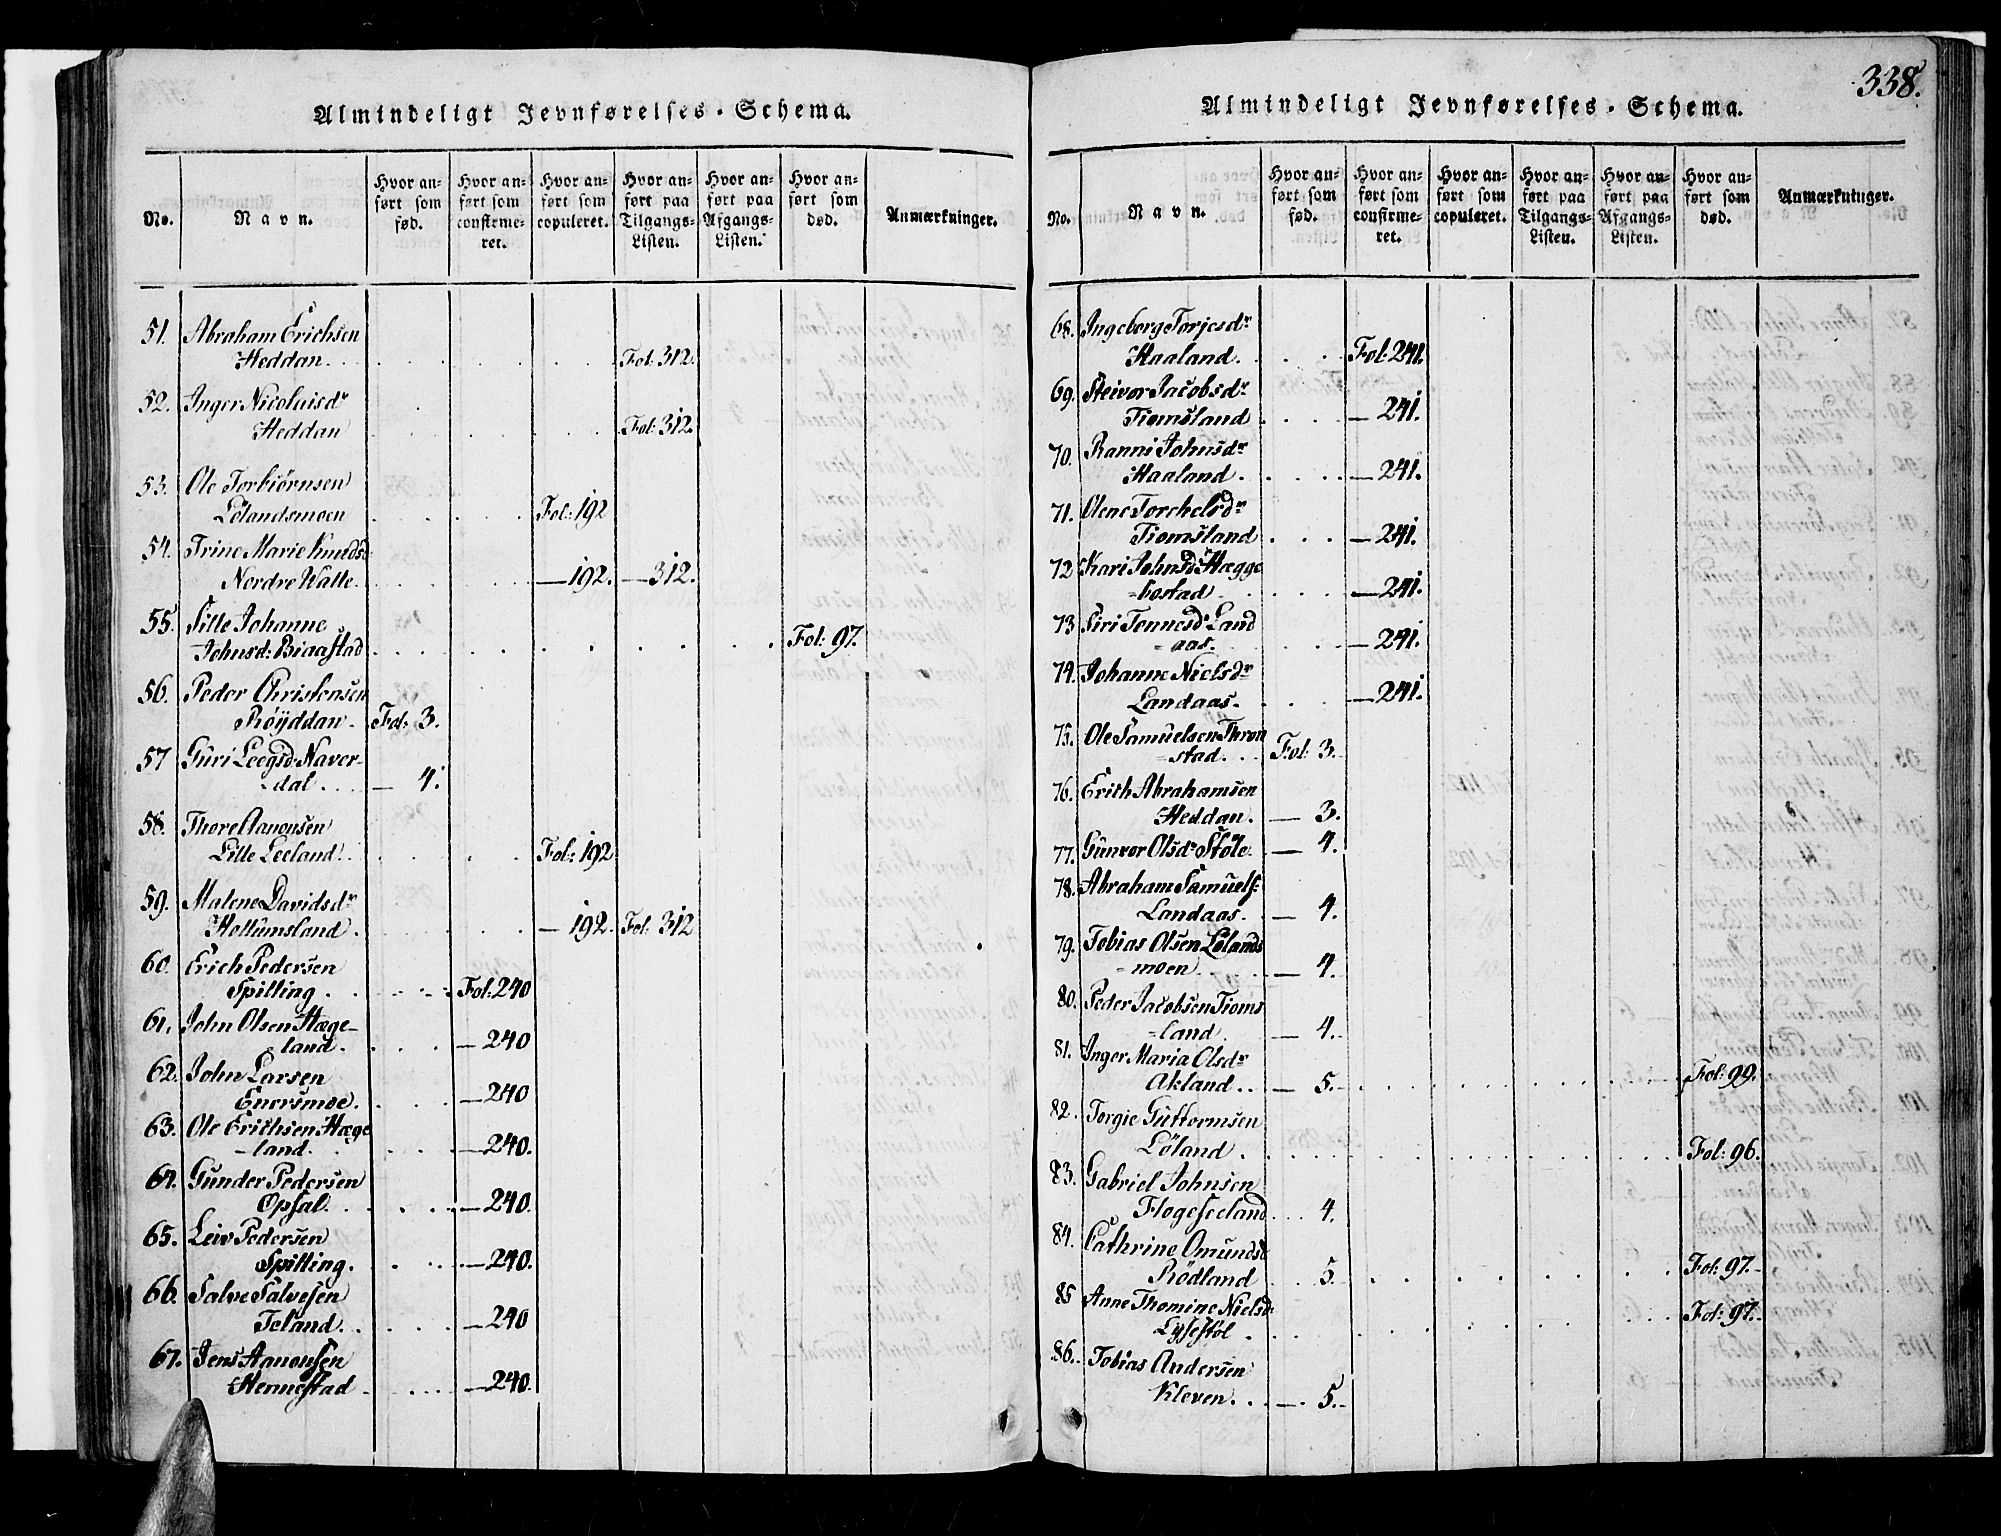 Almindeligt Jevnførelses-Schema.
No. Navn. Hvor anført som fød. Hvor anført som confirmeret. Hvor anført som copuleret. Hvor anført paa Tilgangs-Listen. Hvor anført paa Afgangs-Listen. Hvor anført som død. Anmærkninger.
51. Abraham Erichsen
Heddan. Fol: 312.
52. Inger Nicolaisdr
Heddan Fol: 312.
53. Ole Torbiørnsen
Lölandsmoen Fol: 192
54. Trine Marie Knudsd:
Nordre Walle. — 192. — 312.
55. Sille Johanne
Johnsd: Biaastad Fol: 97.
56. Peder Christensen
Röÿddan. Fol: 3.
57 Guri Leegsd: Naver-
-dal. — 4.
58. Thore Aanonsen
Lille Leeland. Fol: 192
59. Malene Davidsdr
Hollumsland. — 192. Fol: 312
60. Erich Pedersen
Spilling. Fol: 240
61. John Olsen Hæge-
land. — 240
62. John Larsen
Enersmoe. — 240
63. Ole Erichsen Hæge
-land. — 240.
64. Gunder Pedersen
Opsal. — 240.
65. Leiv Pedersen
Spilling. — 240.
66. Salve Salvesen
Teland. — 240
67. Jens Aanonsen
Hennestad — 240.
338.
Almindeligt Jevnførelses-Schema.
No. Navn. Hvor anført som fød. Hvor anført som confirmeret. Hvor anført som copuleret. Hvor anført paa Tilgangs-Listen. Hvor anført paa Afgangs-Listen. Hvor anført som død. Anmærkninger.
68. Ingeborg Torjesdr
Haaland. Fol: 241.
69. Steivor Jacobsdr
Tiomsland — 241.
70. Ranni Johnsdr
Haaland. — 241.
71. Olene Torchelsdr
Tiomsland — 241.
72 Kari Johnsdr Hægge
-bostad — 241.
73 Siri Tonnesdr Land
-aas. — 241.
74. Johanne Nielsdr
Landaas. — 241.
75. Ole Samuelsen Thron
-stad. Fol: 3.
76. Erich Abrahamsen
Heddan. — 3.
77. Gunvor Olsdr Støle. — 4.
78. Abraham Samuels:
Landaas. — 4.
79. Tobias Olsen Lölands
-moen — 4.
80. Peder Jacobsen Tioms
-land. — 4.
81. Inger Maria Olsdr
Akland. — 5. Fol: 99.
82. Torgie Guttormsen
Löland. Fol: 96.
83. Gabriel Johnsen
Flogeseeland 4.
84. Cathrine Omundsd
Rödland 5. Fol: 97.
85 Anne Thomine Nielsd:
Lyssestöl. Fol: 97.
86. Tobias Andersen
Kleven. — 5.